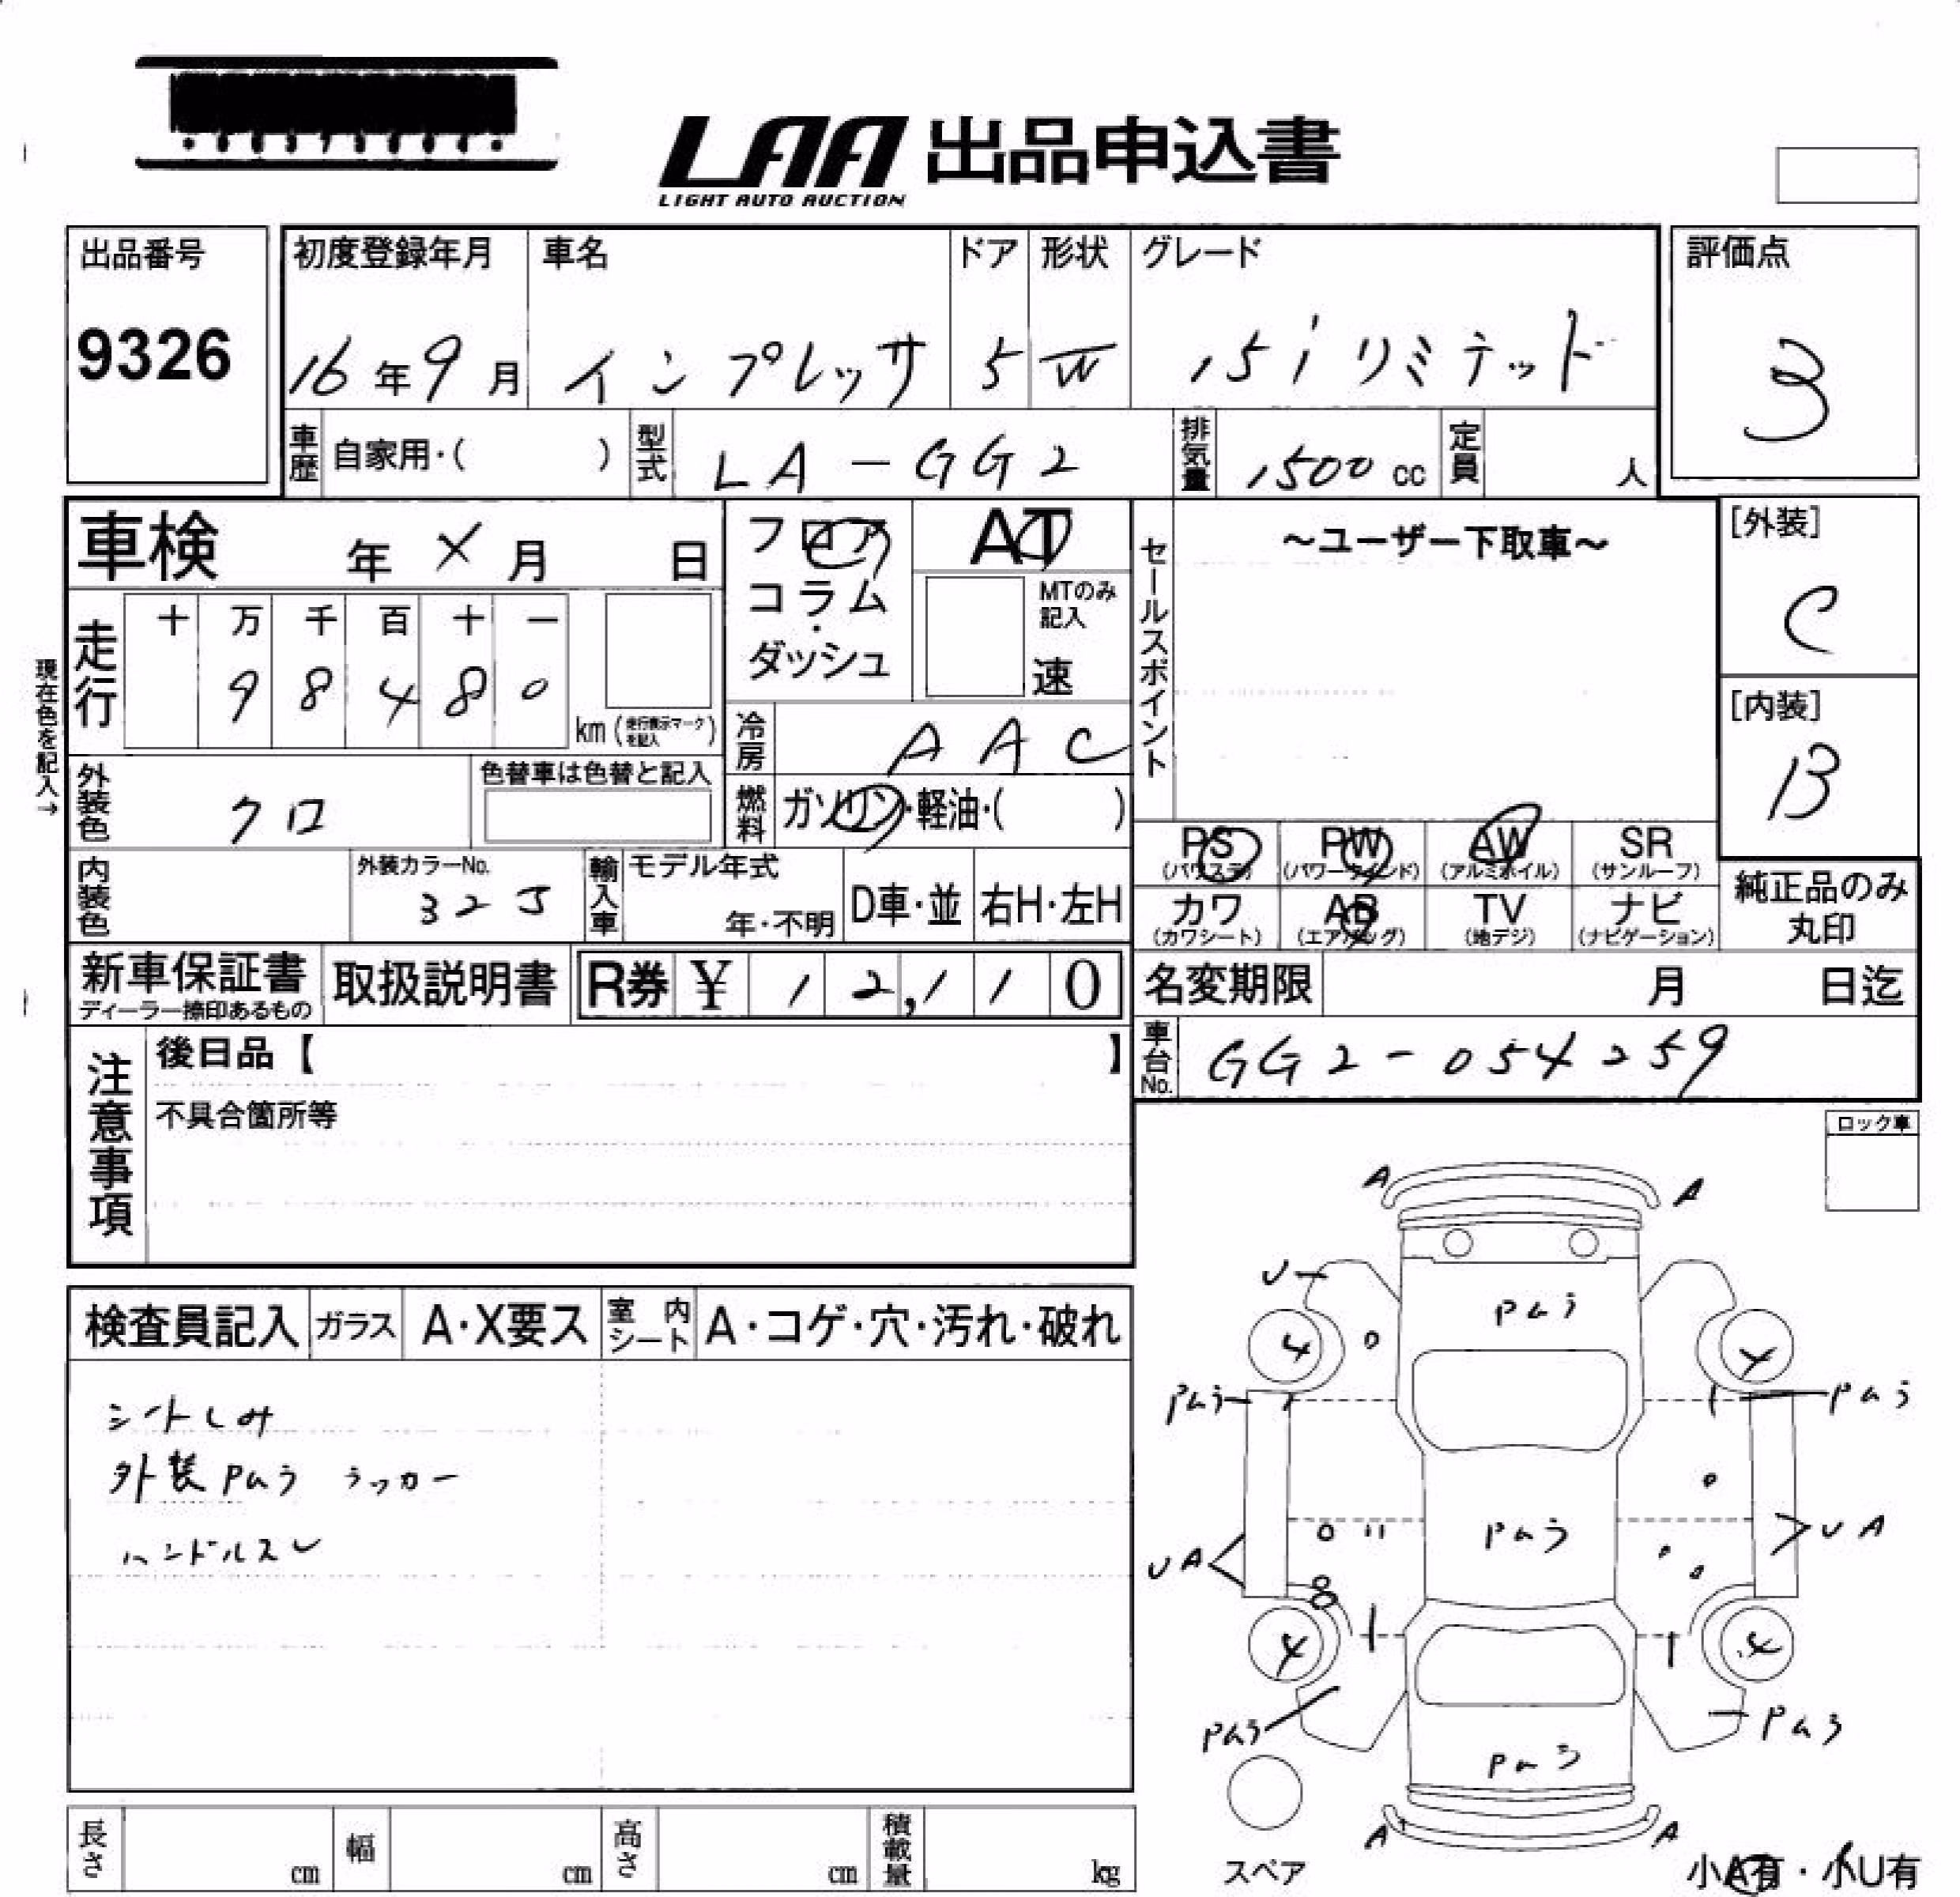 LAA 出品申込書
LIGHT AUTO AUCTION
出品番号
9326
初度登録年月
16年9月
車名
インプレッサ
ドア
5
形状
W
グレード
15iリミテッド
評価点
3
車歴 自家用・( )
型式 LA-GG2
排気量 1500cc
定員 人
車検 年 × 月 日
フロア
コラム
・
ダッシュ
AT
MTのみ
記入
速
セールスポイント
～ユーザー下取車～
[外装]
C
[内装]
B
現在色を記入→
走行
十 万 千 百 十 一
9 8 4 8 0
km(走行表示マークを記入)
冷房 AAC
燃料 ガソリン・軽油・( )
外装色 クロ
色替車は色替と記入
内装色
外装カラーNo.
32J
輸入車
モデル年式
年・不明
D車・並
右H・左H
PS
(パワステ)
PW
(パワーウインド)
AW
(アルミホイル)
SR
(サンルーフ)
カワ
(カワシート)
AB
(エアバッグ)
TV
(地デジ)
ナビ
(ナビゲーション)
純正品のみ
丸印
新車保証書
ディーラー捺印あるもの
取扱説明書
R券 ¥ 12,110
名変期限 月 日迄
車台No. GG2-054259
注意事項
後日品【 】
不具合箇所等
ロック車
検査員記入
ガラス
A・X要ス
室内シート
A・コゲ・穴・汚れ・破れ
シートしみ
外装Pムラ ラッカー
ハンドルスレ
A A
U
Pムラ
4 4
Pムラ Pムラ
Pムラ
UA UA
4 4
Pムラ Pムラ
Pムラ
A A
スペア
小A有・小U有
長さ cm
幅 cm
高さ cm
積載量 kg